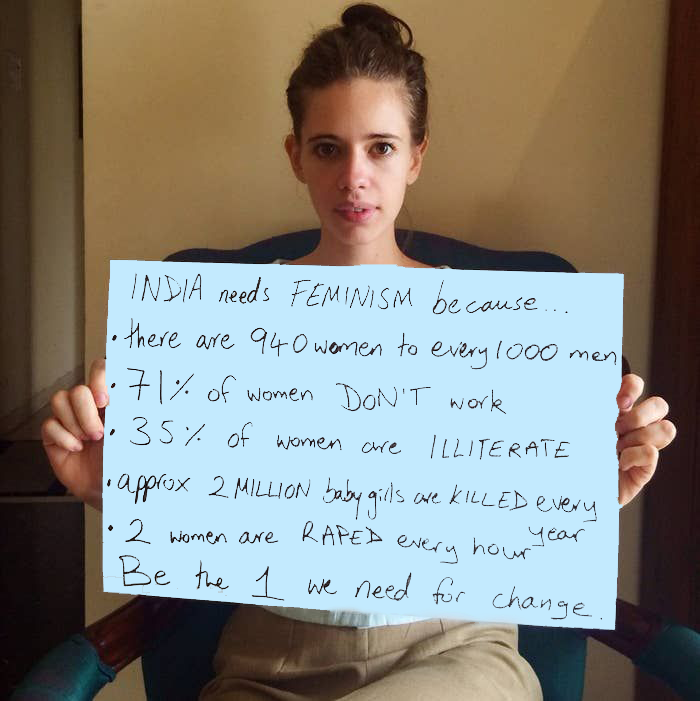 INDIA needs FEMINISM because...
• there are 940 women to every 1000 men
• 71% of women DON'T work
• 35% of women are ILLITERATE
• approx 2 MILLION baby girls are KILLED every
year
• 2 women are RAPED every hour
Be the 1 we need for change.